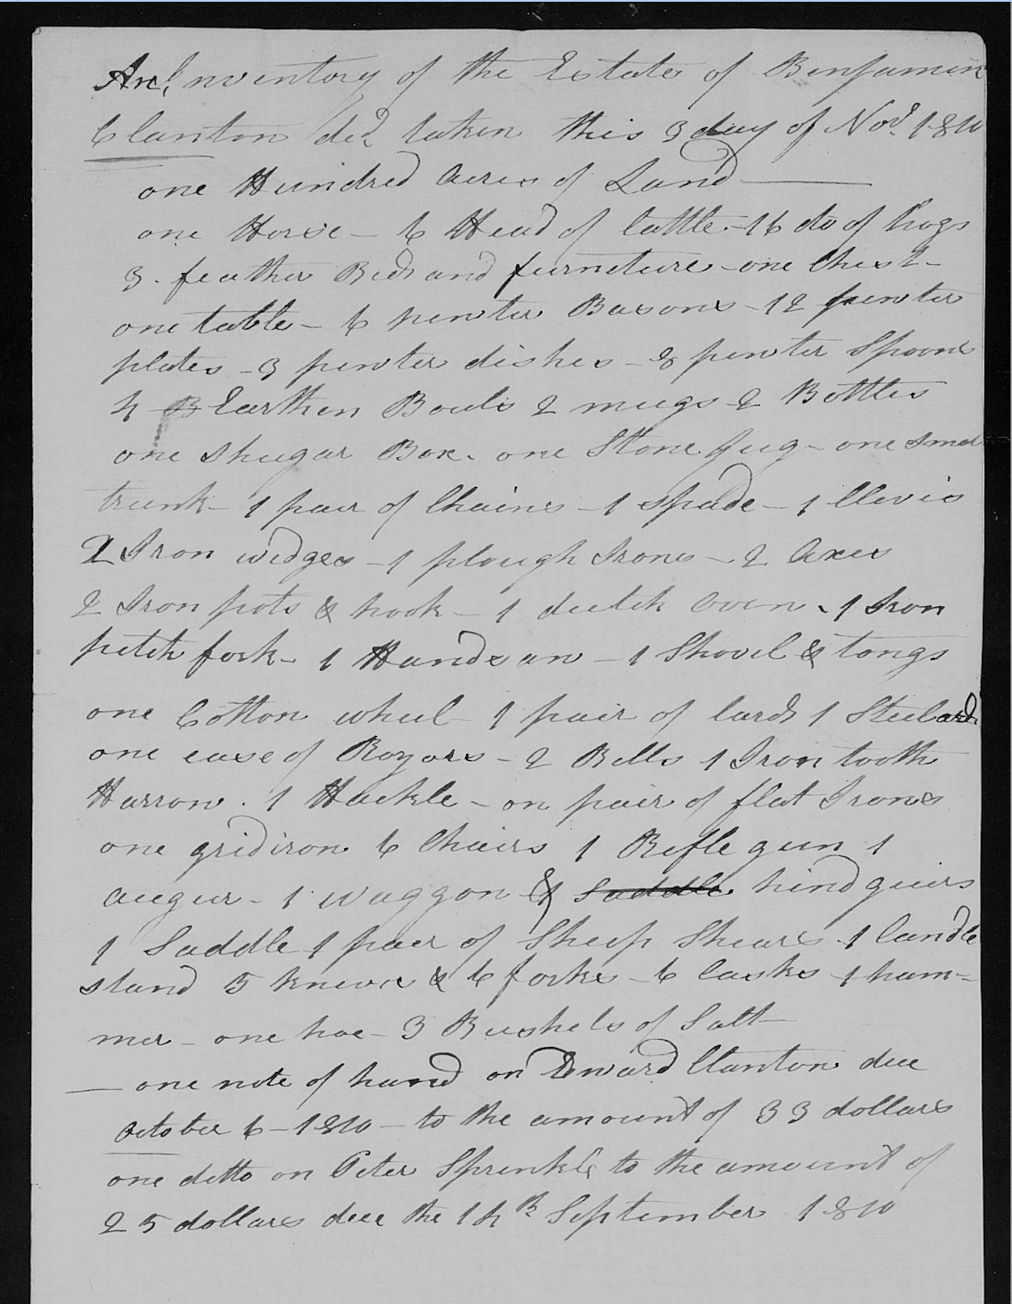 An Inventory of the Estate of Benjamin
Clanton decd taken this 3 day of Novr 1810
one Hundred acres of Land
one Horse - 6 Head of Cattle - 16 do of hogs
3 - feather Beds and furneture - one Chest -
one table - 6 pewter Basons - 12 pewter
plates - 3 pewter dishes - 8 pewter Spoons
4 Earthen Bouls 2 mugs 2 Bottles
one Shugar Box - one Stone Jug - one Smal
trunk - 1 pair of Chains - 1 spade - 1 Clevis
2 Iron widges - 1 plough Irons - 2 axes
2 Iron pots & hook - 1 dutch oven - 1 Iron
pitch fork - 1 Handsaw - 1 Shovel & tongs
one Cotton wheel - 1 pair of Cards 1 Steelards
one case of Rozars - 2 Bells 1 Iron tooth
Harrow - 1 Hackle - on pair of flat Irons
one gridiron 6 Chairs 1 Rifle gun 1
augur - 1 waggon & Saddle hind geirs
1 Saddle 1 pair of Sheep Shears - 1 Candle
stand 5 knives & 6 forks - 6 Casks - 1 ham-
mer - one hoe - 3 Bushels of Salt -
- one note of hand on Edward Clanton due
October 6 - 1810 - to the amount of 33 dollars
one ditto on Peter Sprinkle to the amount of
25 dollars due the 14th September 1810